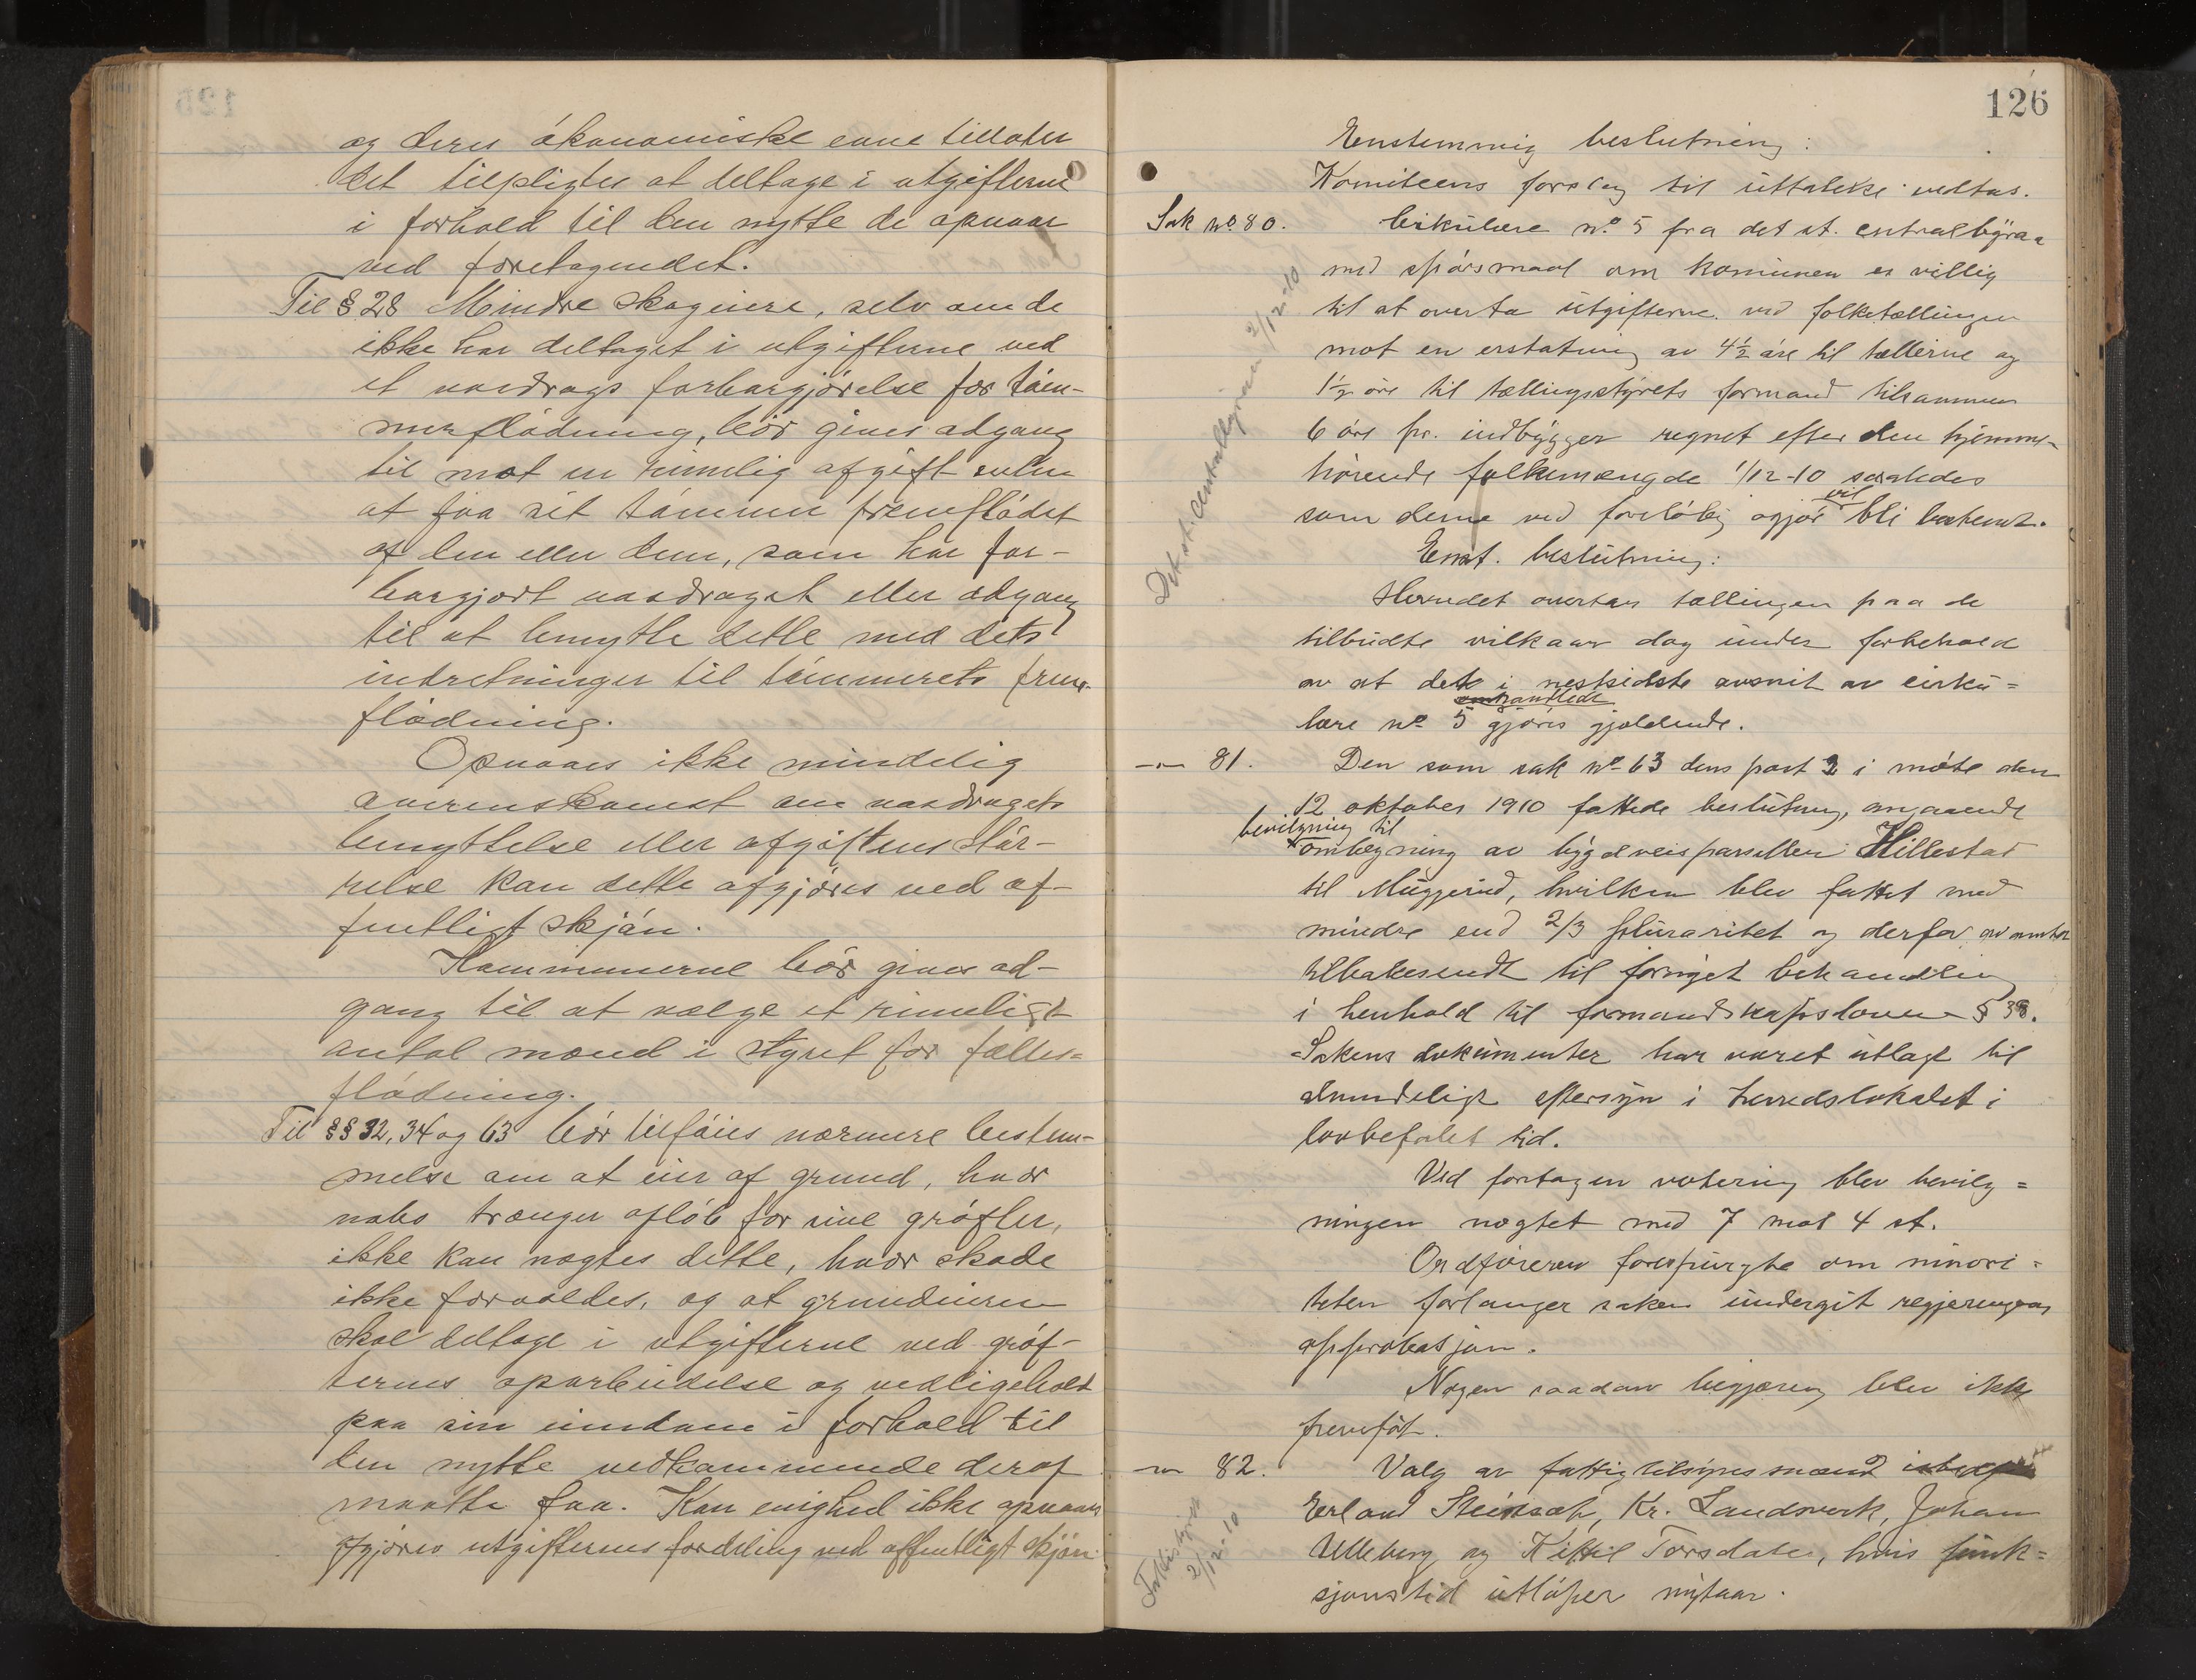 og deres ökonomiske evne tillater
det tilpligtes at deltage i utgifterne
i forhold til den nytte de opnaar
ved foretagendet.
Til § 28 Mindre skogeiere, selv om de
ikke har deltaget i utgifterne ved
et vasdrags farbargjörelse for töm-
merflödning, bör gives adgang
til mot en rimelig afgift enten
at faa sit tömmer fremflödet
af den eller dem, som har far-
bargjort vasdraget eller adgang
til at benytte dette med dets
indretninger til tömmerets frem-
flödning.
Opnaaes ikke mindelig
overenskomst om vasdragets
benyttelse eller afgiftens stör-
relse kan dette afgjöres ved of-
fentligt skjön.
Kommunerne bör gives ad-
gang til at vælge et rimeligt
antal mænd i styret for fælles-
flödning.
Til §§ 32, 34 og 63 bör tilföies nærmere bestem-
melse om at eier af grund, hvor
nabo trænger aflöb for sine gröfter,
ikke kan nægtes dette, hvor skade
ikke forvoldes, og at grundeieren
skal deltage i utgifterne ved gröf-
ternes oparbeidelse og vedligehold
paa sin eiendom i forhold til
den nytte vedkommende deraf
maatte faa. Kan enighed ikke opnaaes
afgjöres utgifternes fordeling ved offentligt skjön.
126
Enstemmig beslutning:
Komiteens forslag til uttalelse vedtas.
Sak no 80. Cirkulære no. 5 fra det st. centralbyraa
med spörsmaal om komunen er villig
til at overta utgifterne ved folketællingen
mot en erstatning av 4½ öre til tællerne og
1½ öre til tællingsstyrets formand tilsammen
6 öre pr. indbygger regnet efter den hjemme-
hörende folkemængde 1/12-10 saaledes
som denne ved forelöbig opgjör vil bli bestemt.
Det st. centralbyraa 2/12-10
Enst. beslutning:
Herredet overtar tællingen paa de
tilbudte vilkaar dog under forbehold
av at det i nestsidste avsnit av cirku=
omhandlede
lære no 5 gjöres gjældende.
-"- 81. Den som sak no 63 dens post 2 i möte den
12 oktober 1910 fattede beslutning, angaaende
bevilgning til
omlægning av bygdeveisparsellen Hillestad
til Muggerud, hvilken blev fattet med
mindre end 2/3 pluraritet og derfor av amtet
tilbakesendt til fornyet behandling
i henhold til formandskapsloven § 38.
Sakens dokumenter har været utlagt til
almindeligt eftersyn i herredslokalet i
lovbefalet tid.
Ved foretagen votering blev bevilg=
ningen nægtet med 7 mot 4 st.
Ordföreren forespurgte om minori=
teten forlanger saken undergit regjeringens
approbasjon.
Nogen saadan begjæring blev ikke
fremfört.
-"- 82. Valg av fattigtilsynsmænd
Erland Steinsæt, Kr. Landsverk, Johan
Ulleberg og Kittil Torsdale, hvis funk=
sjonstid utlöper nytaar.
Fattigstyret
2/12-10